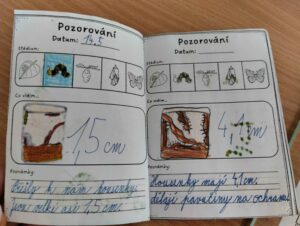 Pozorování
Datum: 14.5
Stádium:
Co vidím...
1,5 cm
Poznámky:
Přišly k nám housenky
jsou velké asi 1,5 cm.
Pozorování
Datum:
Stádium:
Co vidím...
4,1 cm
Poznámky:
Housenky mají 4,1 cm.
dělají pavučiny na ochranu.